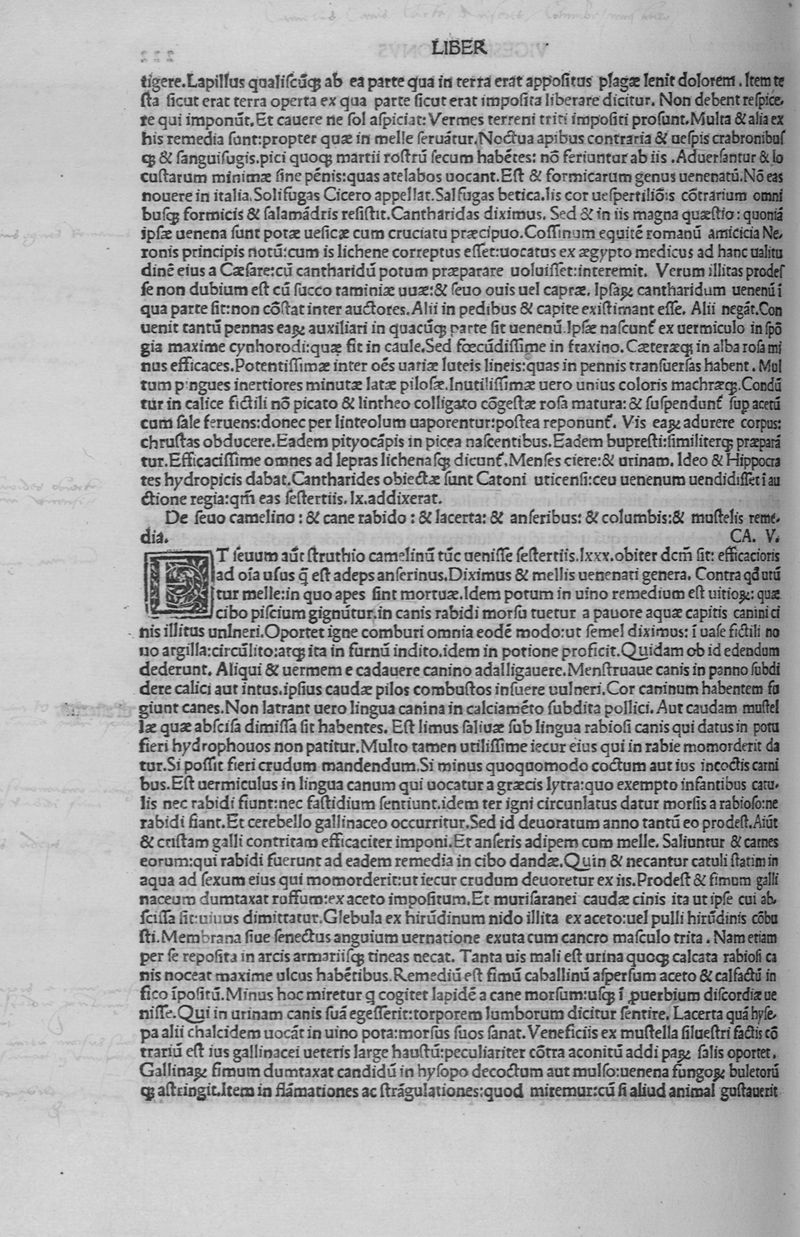 LIBER
tigere.Lapillus qualiscūqȝ ab ea parte qua in terra erat appositus plagæ lenit dolorem. Item te
sta sicut erat terra operta ex qua parte sicut erat imposita liberare dicitur. Non debent respice,
re qui imponūt.Et cauere ne sol aspiciat: Vermes terreni triti impositi prosunt.Multa & alia ex
his remedia sunt:propter quæ in melle seruātur.Noctua apibus contraria & uespis crabronibus
qȝ & sanguisugis.pici quoqȝ martii rostrū secum habētes: nō feriuntur ab iis .Aduersantur & lo
custarum minimæ sine pēnis:quas atelabos uocant.Est & formicarum genus uenenatū.Nō eas
nouere in italia.Solifugas Cicero appellat.Salfugas betica.Iis cor uespertiliōis cōtrarium omni
busqȝ formicis & salamādris resistit.Cantharidas diximus. Sed & in iis magna quæstio: quoniā
ipsæ uenena sunt potæ uesicæ cum cruciatu præcipuo.Cossinum equitē romanū amicicia Ne,
ronis principis notū:cum is lichene correptus esset:uocatus ex ægypto medicus ad hanc ualitu
dinē eius a Cæsare:cū cantharidū potum præparare uoluisset:interemit. Verum illitas prodes
se non dubium est cū succo taminiæ uuæ:& seuo ouis uel capræ. Ipsaꝝ cantharidum uenenū ī
qua parte sit:non cōstat inter auctores.Alii in pedibus & capite existimant esse. Alii negāt.Con
uenit tantū pennas eaꝝ auxiliari in quacūqȝ parte sit uenenū.Ipsæ nascunt̃ ex uermiculo in spō
gia maxime cynhorodi:quæ fit in caule.Sed fœcūdissime in fraxino.Cæteræqȝ in alba rosa mi
nus efficaces.Potentissimæ inter oēs uariæ luteis lineis:quas in pennis transuersas habent. Mul
tum pingues inertiores minutæ latæ pilosæ.Inutilissimæ uero unius coloris machræqȝ.Condū
tur in calice fictili nō picato & lintheo colligato cōgestæ rosa matura: & suspendunt̃ sup acetū
cum sale feruens:donec per linteolum uaporentur:postea reponunt̃. Vis eaꝝ adurere corpus:
chrustas obducere.Eadem pityocāpis in picea nascentibus.Eadem bupresti:similiterqȝ præparā
tur.Efficacissime omnes ad lepras lichenasqȝ dicunt̃.Menses ciere:& urinam. Ideo & Hippocra
tes hydropicis dabat.Cantharides obiectæ sunt Catoni uticensi:ceu uenenum uendidisset ī au
ctione regia:qm̄ eas sestertiis. lx.addixerat.
De seuo camelino: & cane rabido : & lacerta: & anseribus: & columbis:& mustelis reme,
dia. CA. V.
ET seuum aūt struthio camelinū tūc uenisse sestertiis.lxxx.obiter dcm̄ sit: efficacioris
ad oīa usus q̄ est adeps anserinus.Diximus & mellis uenenati genera. Contra qd utū
tur melle:in quo apes sint mortuæ.Idem potum in uino remedium est uitioꝝ: quæ
cibo piscium gignūtur.in canis rabidi morsu tuetur a pauore aquæ capitis canini ci
nis illitus uulneri.Oportet igne comburi omnia eodē modo:ut semel diximus: ī uase fictili no
uo argilla:circūlito:atqȝ ita in furnū indito.idem in potione proficit.Quidam ob id edendum
dederunt. Aliqui & uermem e cadauere canino adalligauere.Menstruaue canis in panno subdi
dere calici aut intus.ipsius caudæ pilos combustos insuere uulneri.Cor caninum habentem fu
giunt canes.Non latrant uero lingua canina in calciamēto subdita pollici. Aut caudam mustel
læ quæ abscisa dimissa sit habentes. Est limus saliuæ sub lingua rabiosi canis qui datus in potu
fieri hydrophouos non patitur.Multo tamen utilissime iecur eius qui in rabie momorderit da
tur.Si possit fieri crudum mandendum.Si minus quoquomodo coctum aut ius incoctis carni
bus.Est uermiculus in lingua canum qui uocatur a græcis lytra:quo exempto infantibus catu,
lis nec rabidi fiunt:nec fastidium sentiunt.idem ter igni circunlatus datur morsis a rabioso:ne
rabidi fiant.Et cerebello gallinaceo occurritur.Sed id deuoratum anno tantū eo prodest.Aiūt
& cristam galli contritam efficaciter imponi.Et anseris adipem cum melle. Saliuntur & carnes
eorum:qui rabidi fuerunt ad eadem remedia in cibo dandæ.Quin & necantur catuli statim in
aqua ad sexum eius qui momorderit:ut iecur crudum deuoretur ex iis.Prodest & fimum galli
naceum dumtaxat ruffum:ex aceto impositum.Et murisaranei caudæ cinis ita ut ipse cui ab,
scissa sit:uiuus dimittatur.Glebula ex hirūdinum nido illita ex aceto:uel pulli hirūdinis cōbu
sti.Membrana siue senectus anguium uernatione exuta cum cancro masculo trita. Nam etiam
per se reposita in arcis armariisqȝ tineas necat. Tanta uis mali est urina quoqȝ calcata rabiosi ca
nis noceat maxime ulcus habētibus.Remediū est fimū caballinū aspersum aceto & calfactū in
fico īpositū.Minus hoc miretur q cogitet lapidē a cane morsum:usqȝ ī ꝓuerbium discordiæ ue
nisse.Qui in urinam canis suā egesserit:torporem lumborum dicitur sentire. Lacerta quā hyse,
pa alii chalcidem uocāt in uino pota:morsus suos sanat.Veneficiis ex mustella siluestri factis cō
trariū est ius gallinacei ueteris large haustū:peculiariter cōtra aconitū addi paꝝ salis oportet.
Gallinaꝝ fimum dumtaxat candidū in hysopo decoctum aut mulso:uenena fungoꝝ buletorū
qȝ astringit.Item in flāmationes ac strāgulationes:quod miremur:cū si aliud animal gustauerit